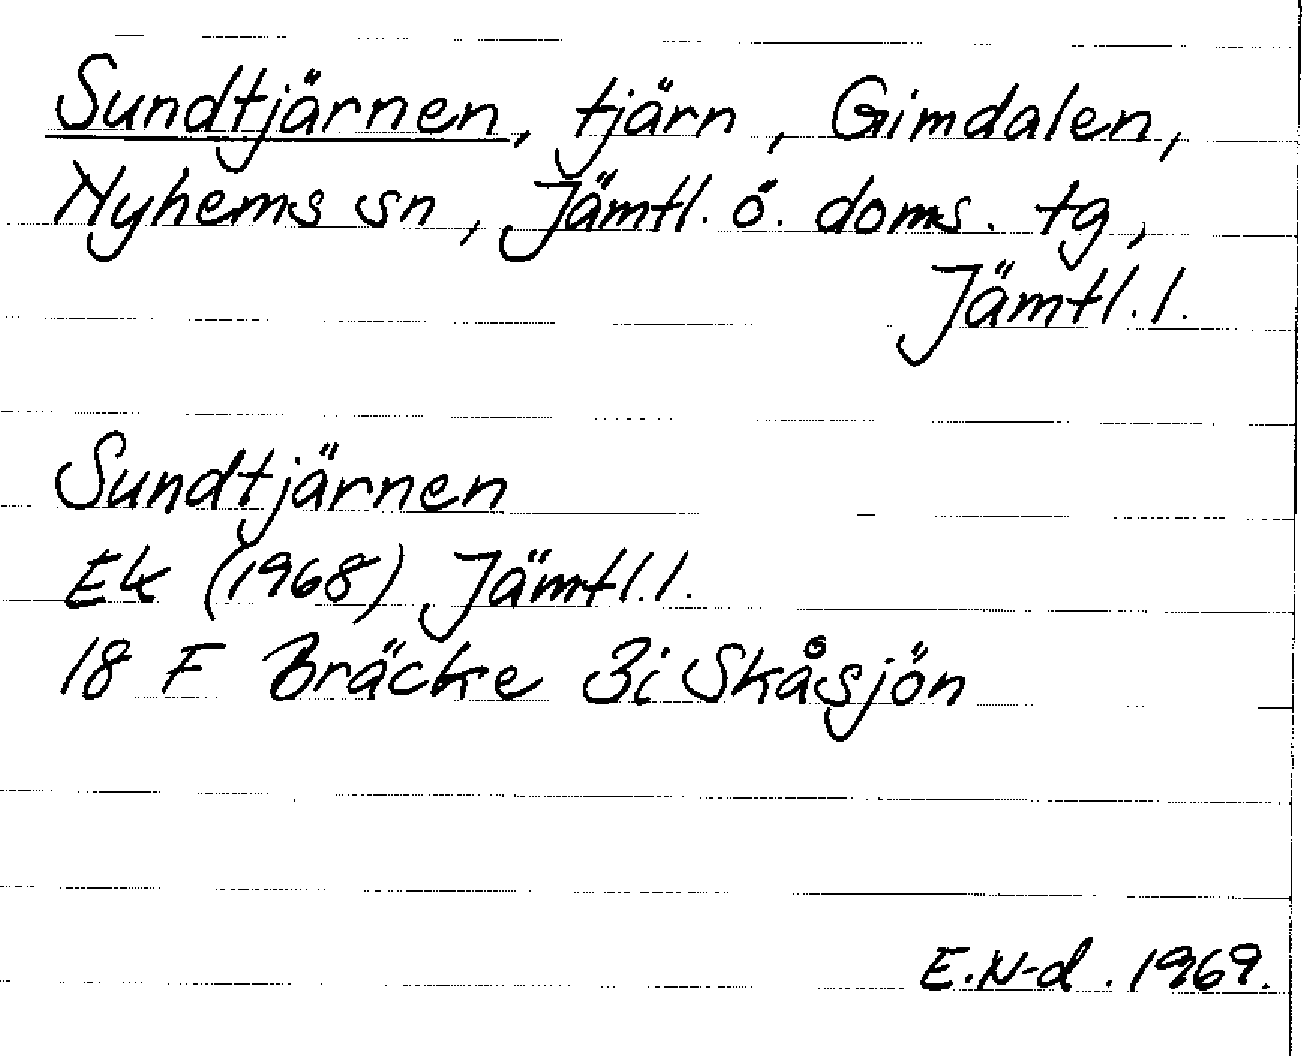 Sundtjärnen, tjärn, Gimdalen,
Nyhems sn, Jämtl. ö. doms. tg,
Jämtl. l.
Sundtjärnen
Ek (1968) Jämtl. l.
18 F Bräcke 3i Skåsjön
E. N-d. 1969.